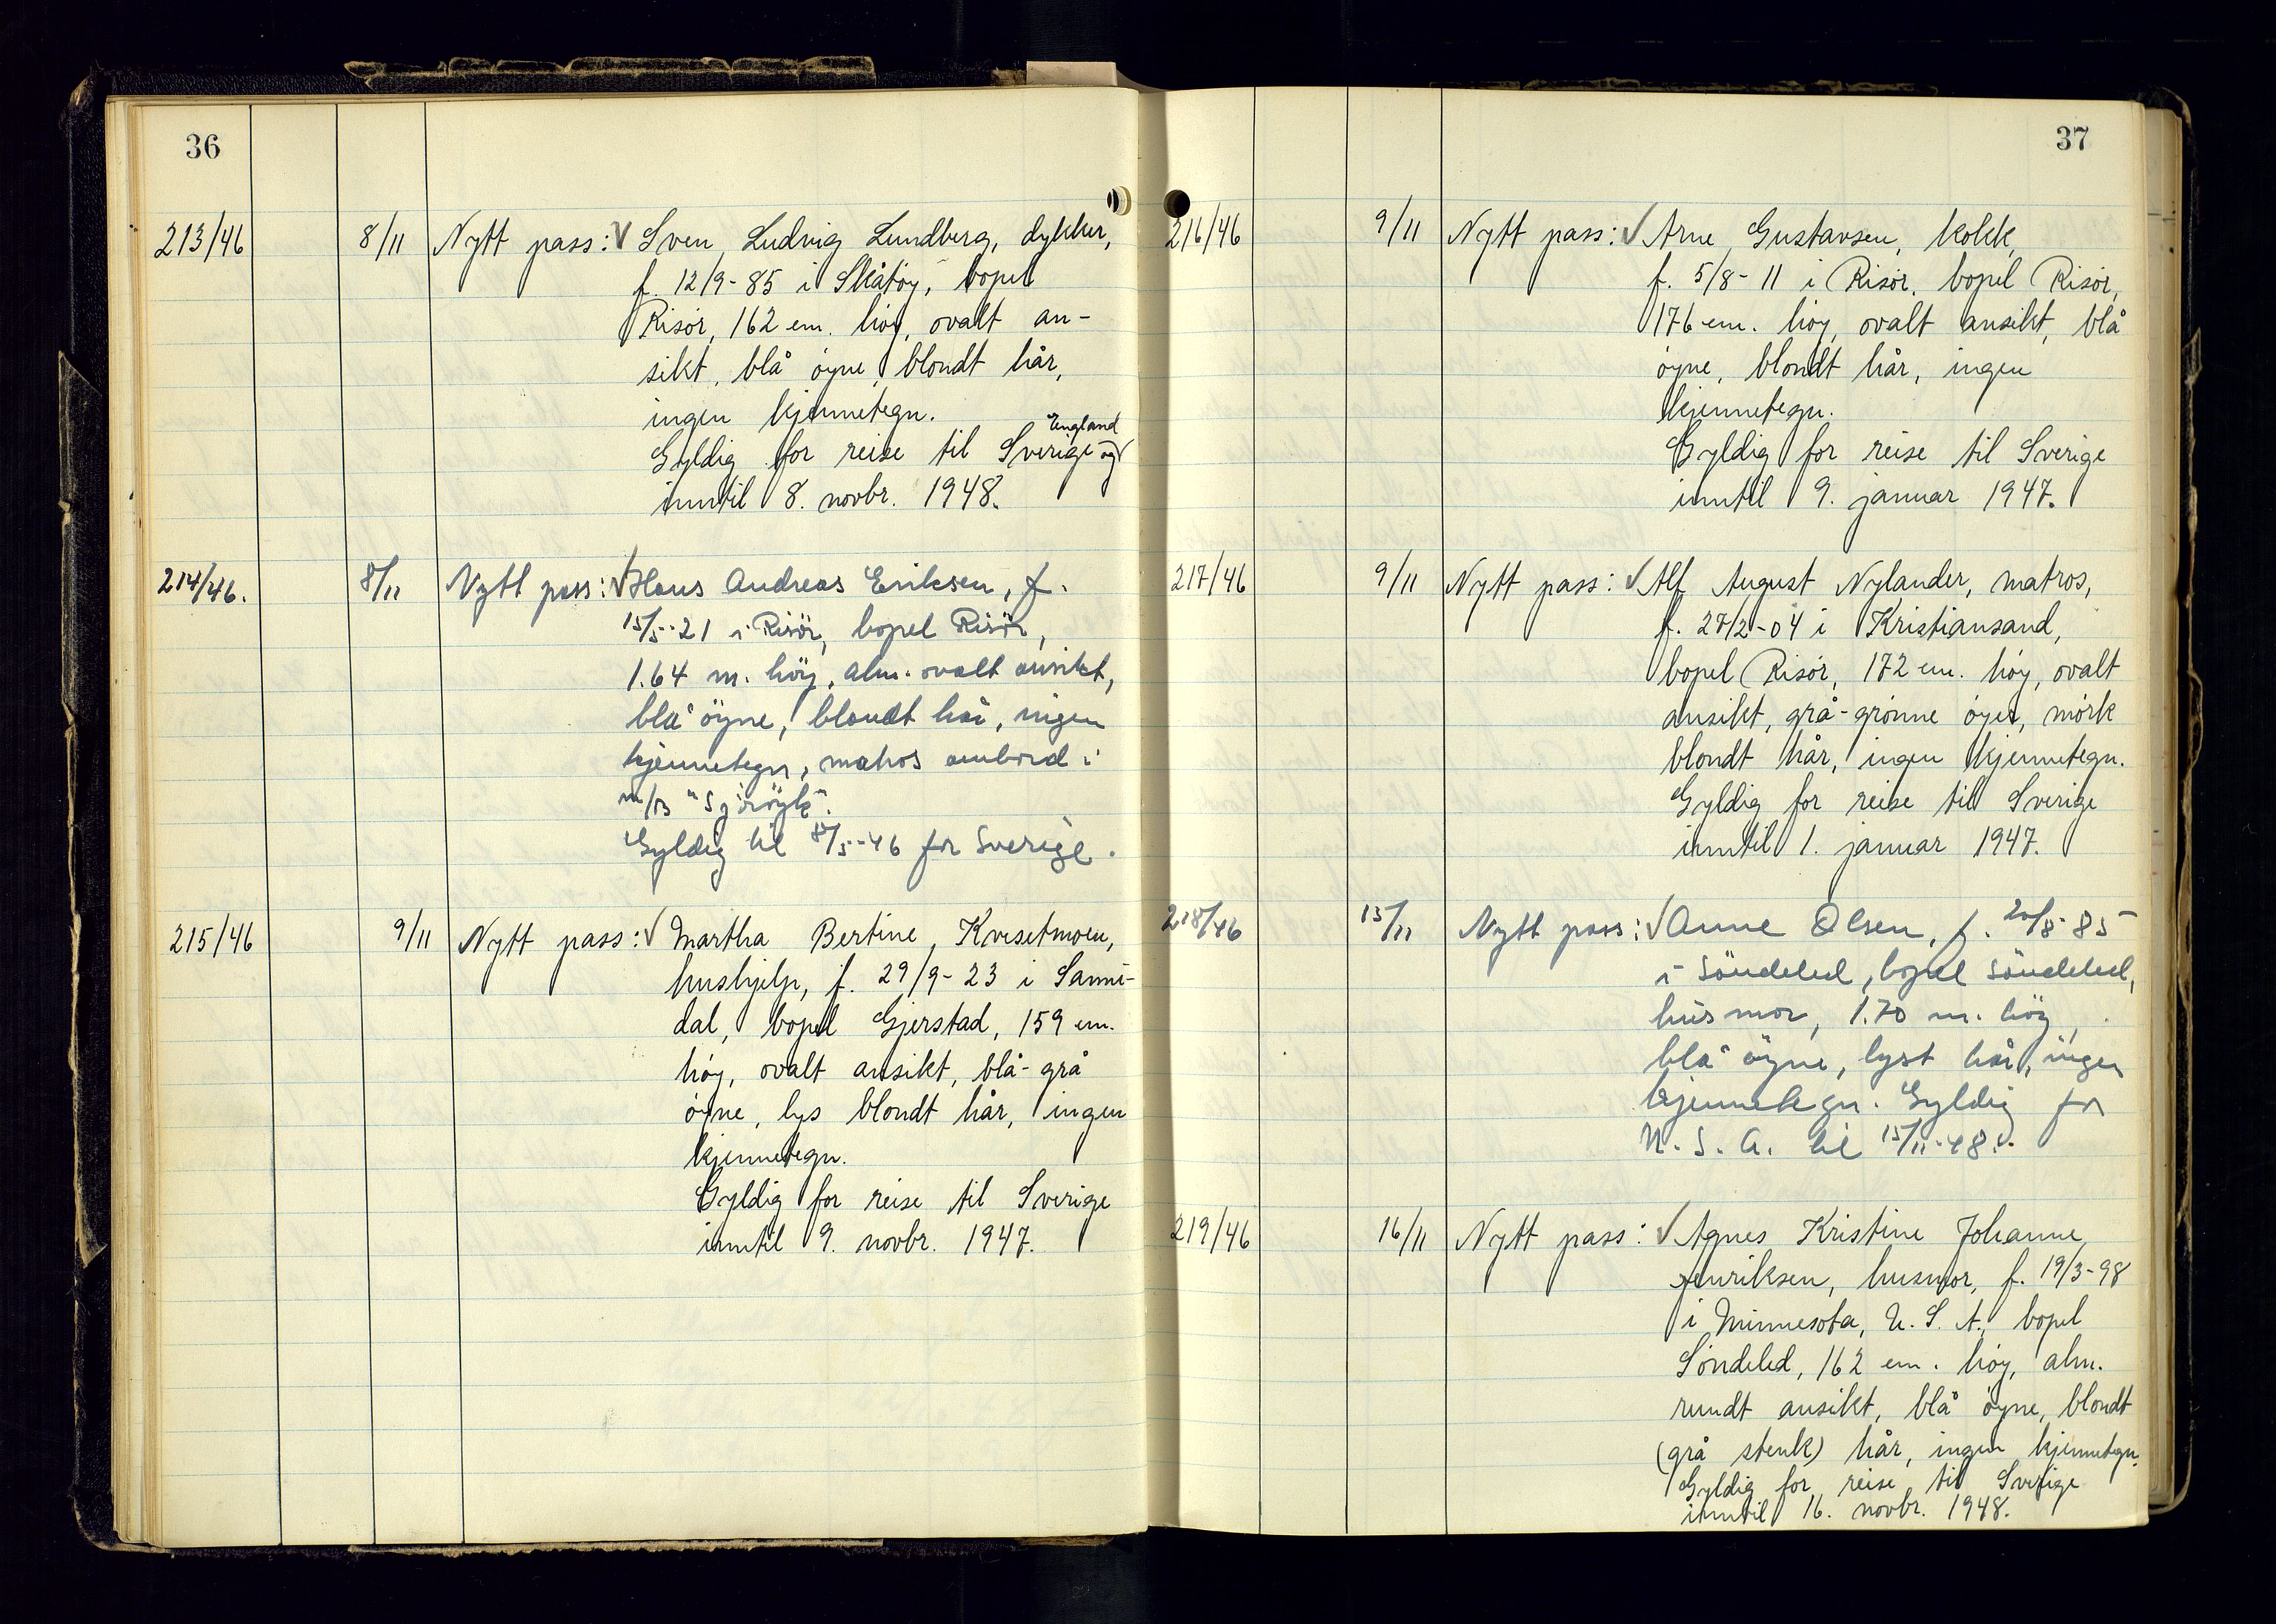 36
213/46 8/11 Nytt pass: √ Sven Ludvig Lundberg, dykker,
f. 12/9-85 i Skåtøy, bopel
Risør, 162 cm. høy, ovalt an-
sikt, blå øyne, blondt hår,
ingen kjennetegn.
England
Gyldig for reise til Sverige og
inntil 8. novbr. 1948.
214/46. 8/11 Nytt pass: √ Hans Andreas Eriksen, f.
15/5-21 i Risör, bopel Risör,
1.64 m. höy, alm. ovalt ansikt,
blå öyne, blondt hår, ingen
kjennetegn, matros ombord i
m/b "Sjöröyk".
Gyldig til /5-46 for Sverige.
215/46 9/11 Nytt pass: √ Martha Bertine, Kvisetmoen,
hushjelp, f. 29/9-23 i Sanni-
dal, bopel Gjerstad, 159 cm.
høy, ovalt ansikt, blå-grå
øyne, lys blondt hår, ingen
kjennetegn.
Gyldig for reise til Sverige
inntil 9. novbr. 1947.
37
216/46 9/11 Nytt pass: √ Arne Gustavsen, kokk,
f. 5/8-11 i Risør, bopel Risør,
176 cm. høy, ovalt ansikt, blå
øyne, blondt hår, ingen
kjennetegn.
Gyldig for reise til Sverige
inntil 9. januar 1947.
217/46 9/11 Nytt pass: √ Alf August Nylander, matros,
f. 27/2-04 i Kristiansand,
bopel Risør, 172 cm. høy, ovalt
ansikt, grå-grønne øyer, mørk
blondt hår, ingen kjennetegn.
Gyldig for reise til Sverige
inntil 1. januar 1947.
218/46 15/11 Nytt pass: √ Anne Olsen, f. 20/8-85
i Söndeled, bopel Söndeled,
husmor, 1.70 m. höy,
blå öyne, lyst hår, ingen
kjennetegn. Gyldig for
U.S.A. til 15/11-48.
219/46 16/11 Nytt pass: √ Agnes Kristine Johanne
Henriksen, husmor, f. 19/3-98
i Minnesota, U.S.A., bopel
Søndeled, 162 cm. høy, alm.
rundt ansikt, blå øyne, blondt
(grå stenk) hår, ingen kjennetegn.
Gyldig for reise til Sverige
inntil 16. novbr. 1948.